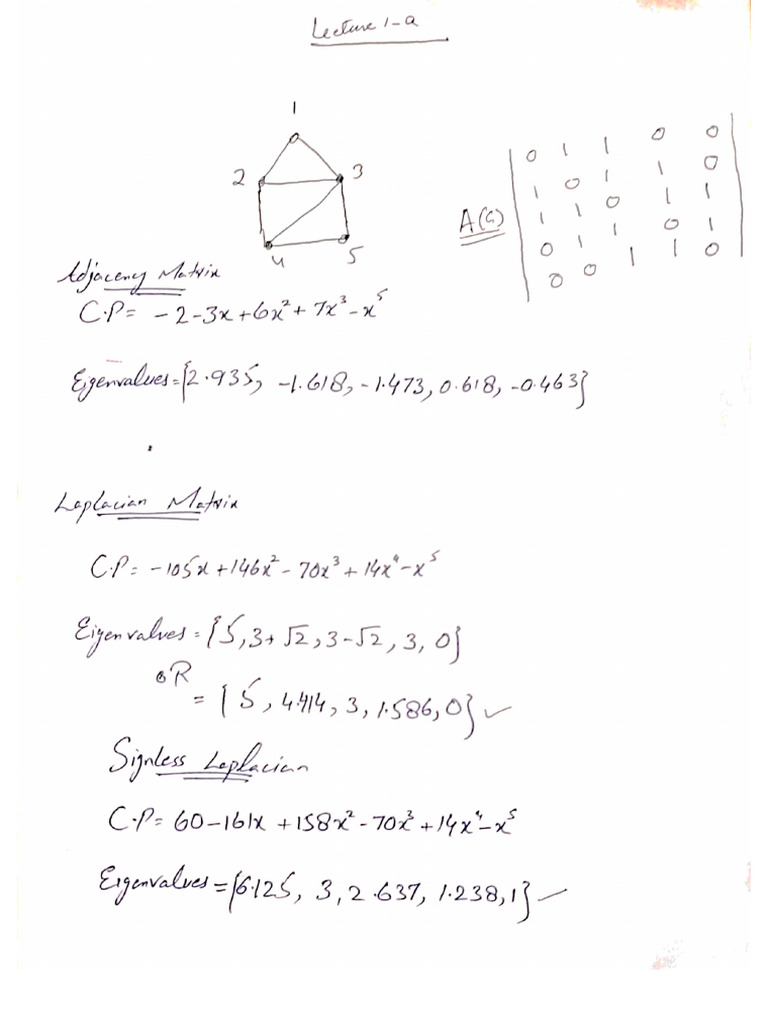 Lecture 1-a
1
2 3
4 5
A(G)
0 1 1 0 0
1 0 1 1 0
1 1 0 1 1
0 1 1 0 1
0 0 1 1 0
Adjaceny Matrix
C.P= -2-3x+6x²+7x³-x⁵
Eigenvalues={2.935, -1.618, -1.473, 0.618, -0.463}
Laplacian Matrix
C.P= -105x+146x²-70x³+14x⁴-x⁵
Eigenvalues={5, 3+√2, 3-√2, 3, 0}
OR
= {5, 4.414, 3, 1.586, 0} ✓
Signless Laplacian
C.P= 60-161x+158x²-70x³+14x⁴-x⁵
Eigenvalues={6.125, 3, 2.637, 1.238, 1} ✓